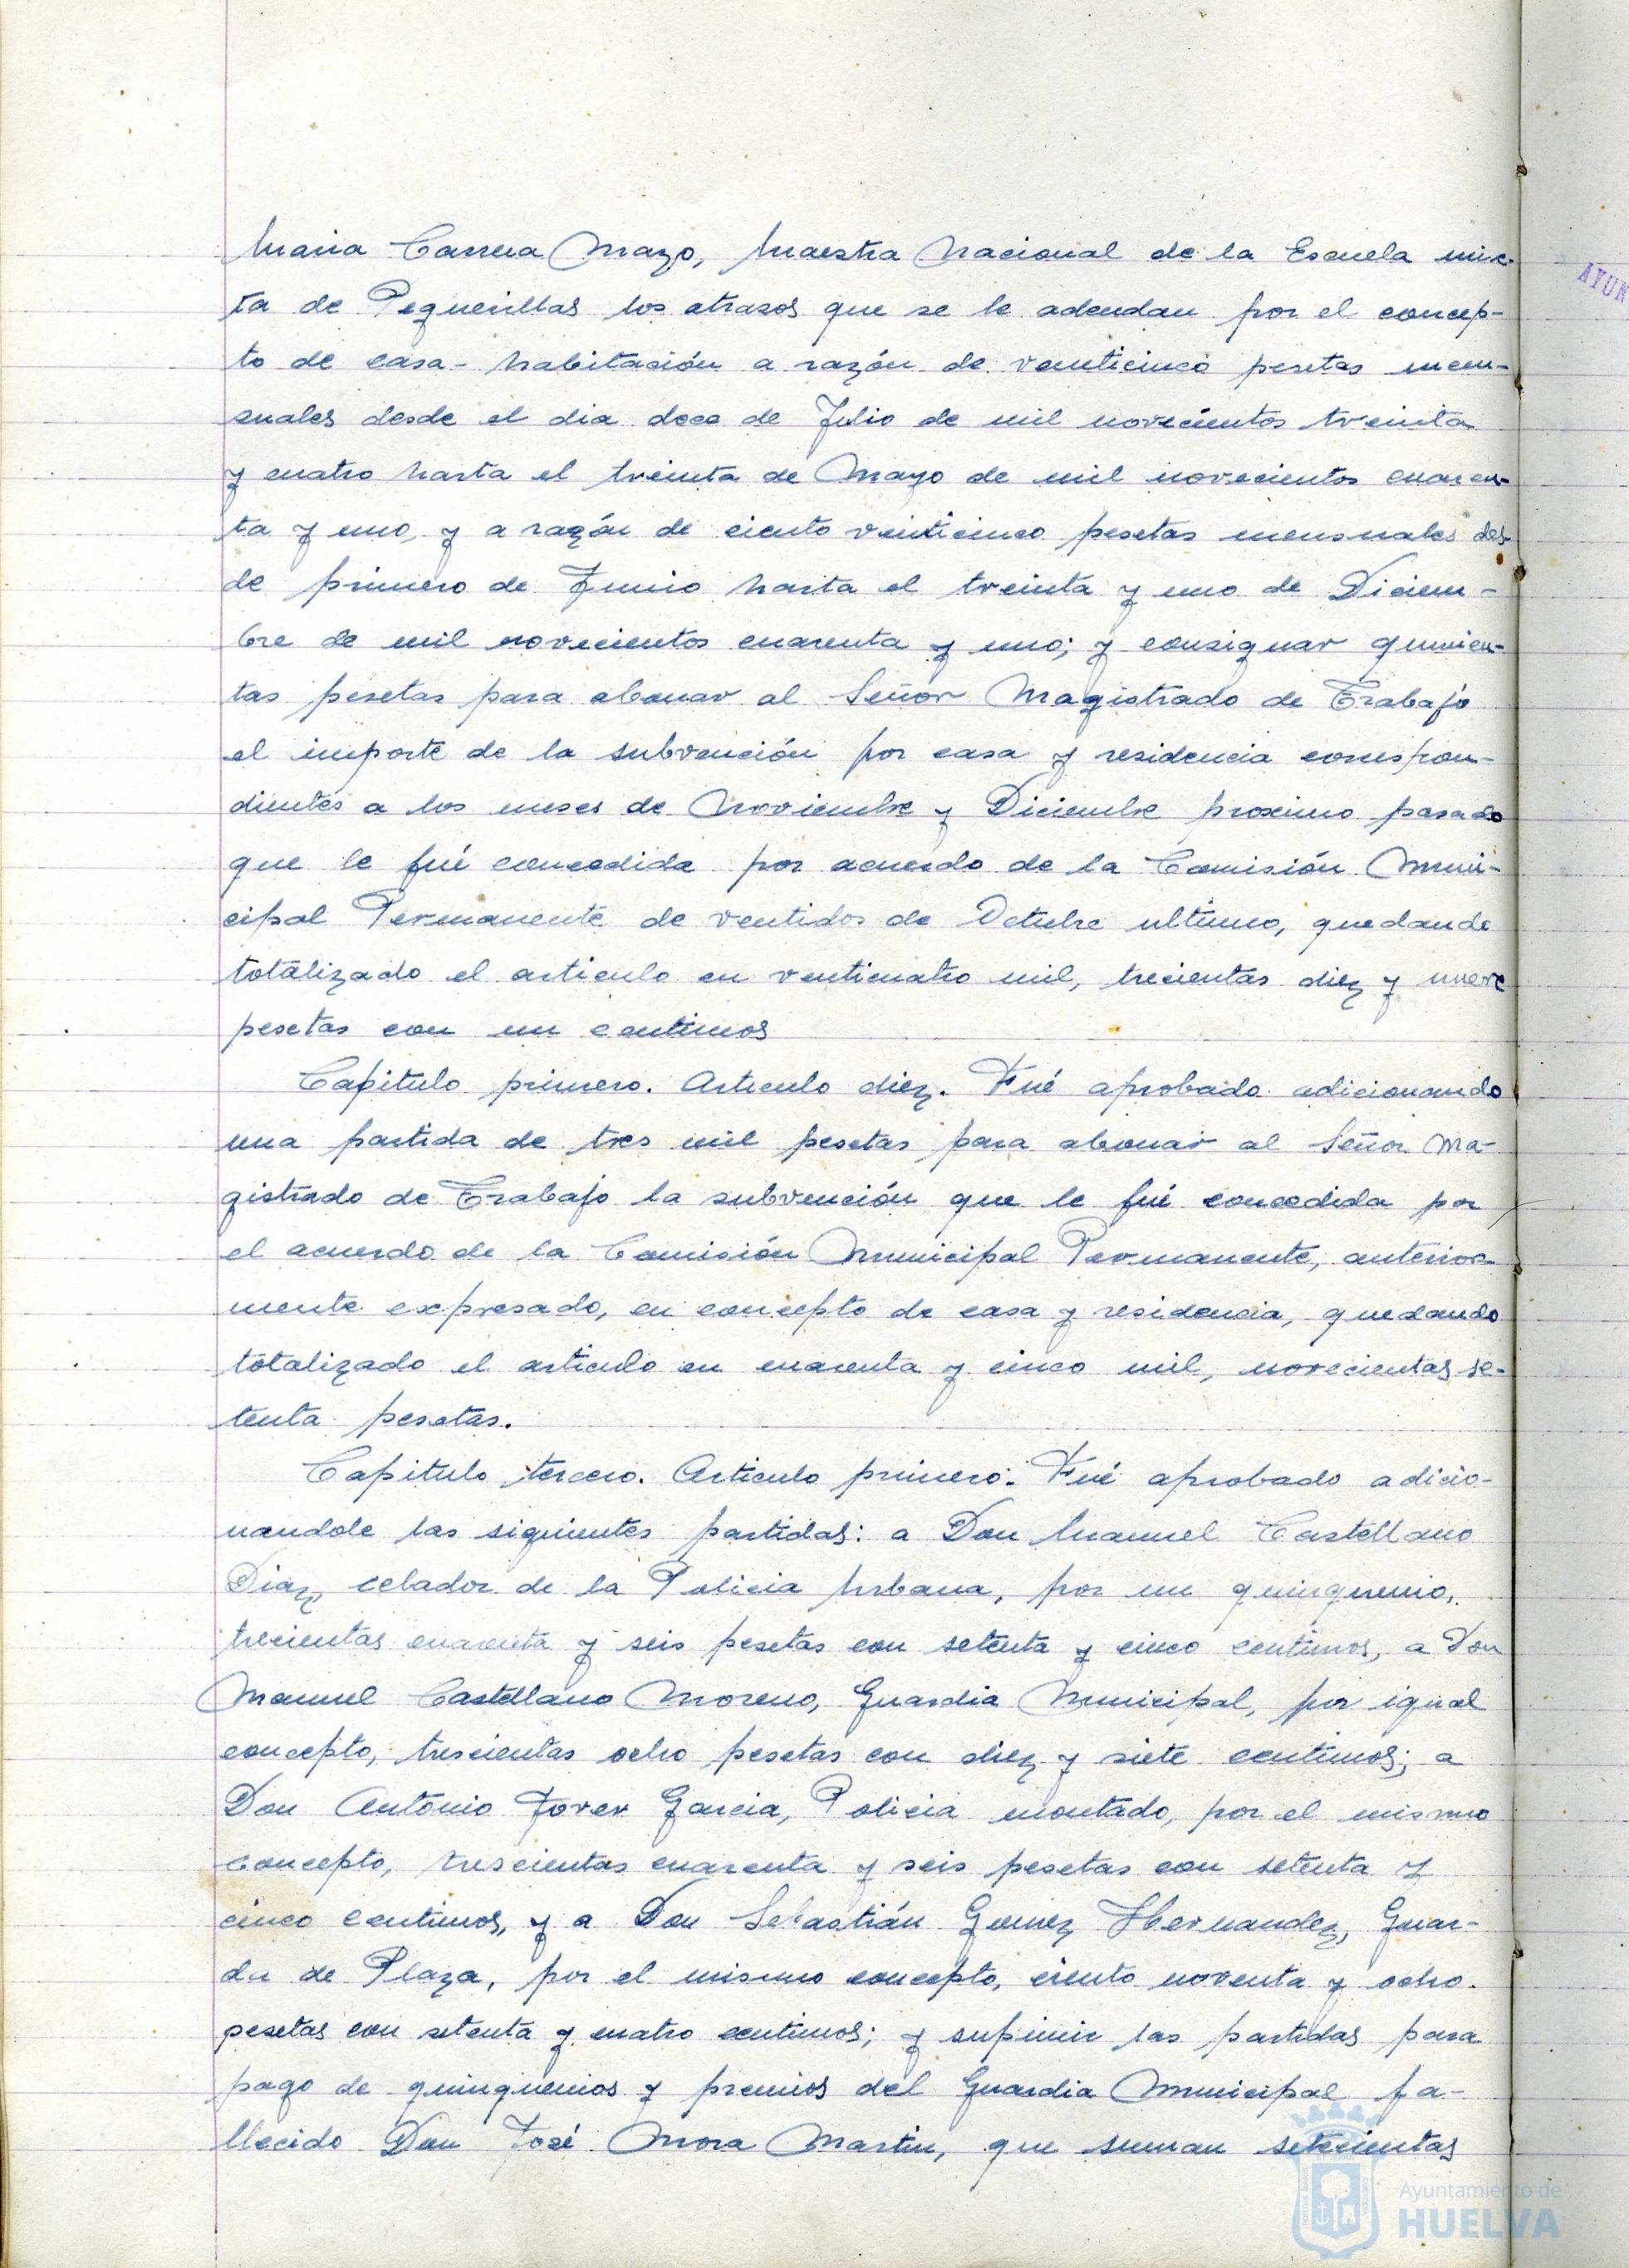 Maria Carrera Mazo, Maestra Nacional de la Escuela mix-
ta de Pequerillas los atrasos que se le adeudan por el concep-
to de casa-habitación a razón de venticinco pesetas men-
suales desde el dia doce de Julio de mil novecientos treinta
y cuatro hasta el treinta de Mayo de mil novecientos cuaren-
ta y uno, y a razón de ciento veinticinco pesetas mensuales des-
de primero de Junio hasta el treinta y uno de Diciem-
bre de mil novecientos cuarenta y uno; y consignar quinien-
tas pesetas para abonar al Señor Magistrado de Trabajo
el importe de la subvención por casa y residencia correspon-
dientes a los meses de Noviembre y Diciembre proximo pasado
que le fué concedida por acuerdo de la Comisión Muni-
cipal Permanente de ventidos de Octubre ultimo, quedando
totalizado el articulo en venticuatro mil, trecientas diez y nueve
pesetas con un centimos
Capitulo primero. Articulo diez. Fué aprobado adicionando
una partida de tres mil pesetas para abonar al Señor Ma-
gistrado de Trabajo la subvención que le fué concedida por
el acuerdo de la Comisión Municipal Permanente, anterior-
mente expresado, en concepto de casa y residencia, quedando
totalizado el articulo en cuarenta y cinco mil, novecientas se-
tenta pesetas.
Capitulo tercero. Articulo primero. Fué aprobado adicio-
nandole las siguientes partidas: a Don Manuel Castellano
Diaz, celador de la Policia Urbana, por un quinquenio,
trecientas cuarenta y seis pesetas con setenta y cinco centimos, a Don
Manuel Castellano Moreno, Guardia Municipal, por igual
concepto, trescientas ocho pesetas con diez y siete centimos; a
Don Antonio Jover Garcia, Policia montado, por el mismo
concepto, trescientas cuarenta y seis pesetas con setenta y
cinco centimos, y a Don Sebastián Gomez Hernandez, Guar-
da de Plaza, por el mismo concepto, ciento noventa y ocho
pesetas con setenta y cuatro centimos; y supimir las partidas para
pago de quinquenios y premios del Guardia Municipal fa-
llecido Don José Mora Martin, que suman setecientas
AYUN
Ayuntamiento de
HUELVA